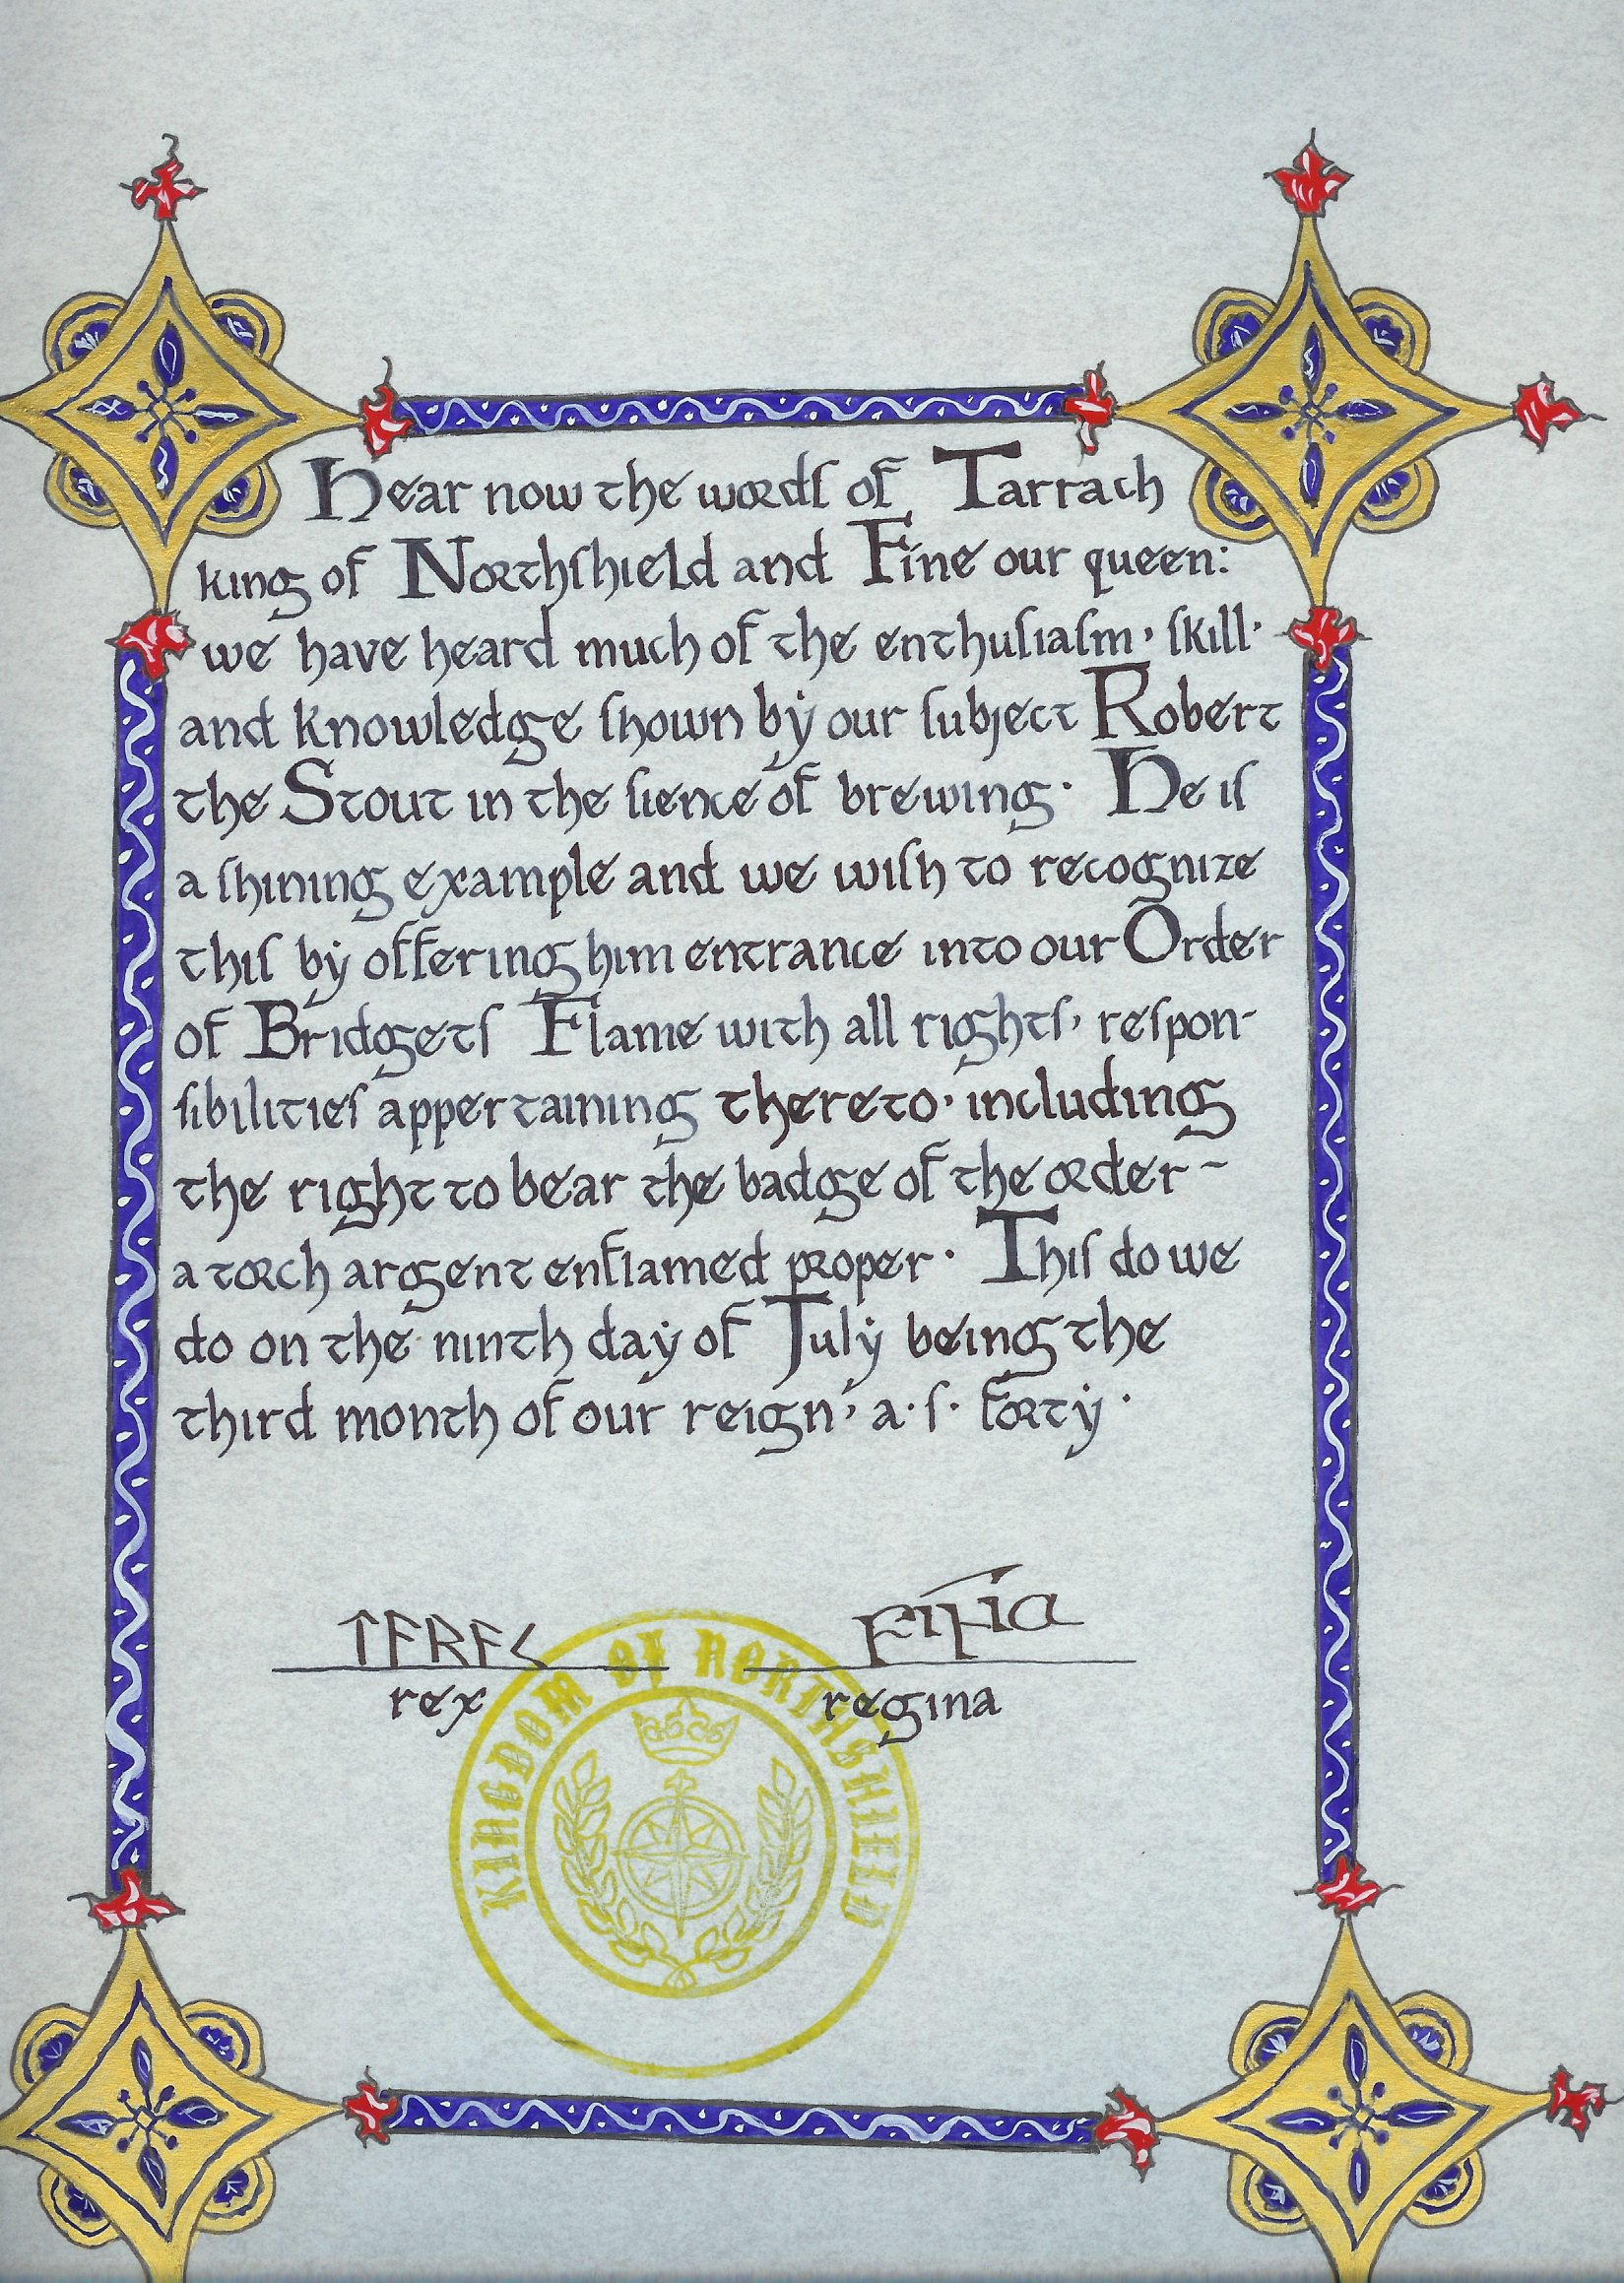 Hear now the words of Tarrach
king of Northshield and Fine our queen:
we have heard much of the enthusiasm, skill,
and knowledge shown by our subject Robert
the Stout in the sience of brewing. He is
a shining example and we wish to recognize
this by offering him entrance into our Order
of Bridgets Flame with all rights, respon-
sibilities appertaining thereto, including
the right to bear the badge of the order ~
a torch argent enflamed proper. This do we
do on the ninth day of July being the
third month of our reign, a.s. forty.
TARAC
rex
regina
KINGDOM OF NORTHSHIELD